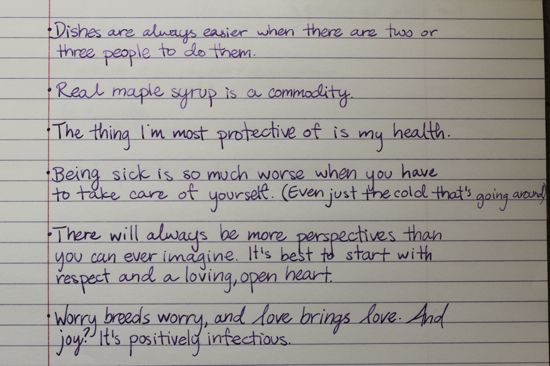 • Dishes are always easier when there are two or
three people to do them.
• Real maple syrup is a commodity.
• The thing I'm most protective of is my health.
• Being sick is so much worse when you have
to take care of yourself. (Even just the cold that's going around)
• There will always be more perspectives than
you can ever imagine. It's best to start with
respect and a loving, open heart.
• Worry breeds worry, and love brings love. And
joy? It's positively infectious.